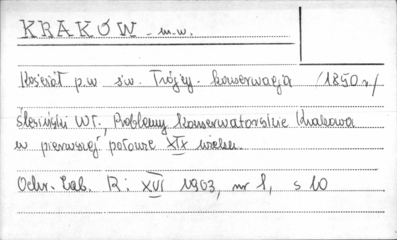 KRAKÓW - m.w.
Kościół p.w św. Trójcy. konserwacja /1850 r/
Ślesiński Wł., Problemy konserwatorskie Krakowa
w pierwszej połowie XIX wieku.
Ochr. Zab. R: XVI 1963, nr 1, s 10